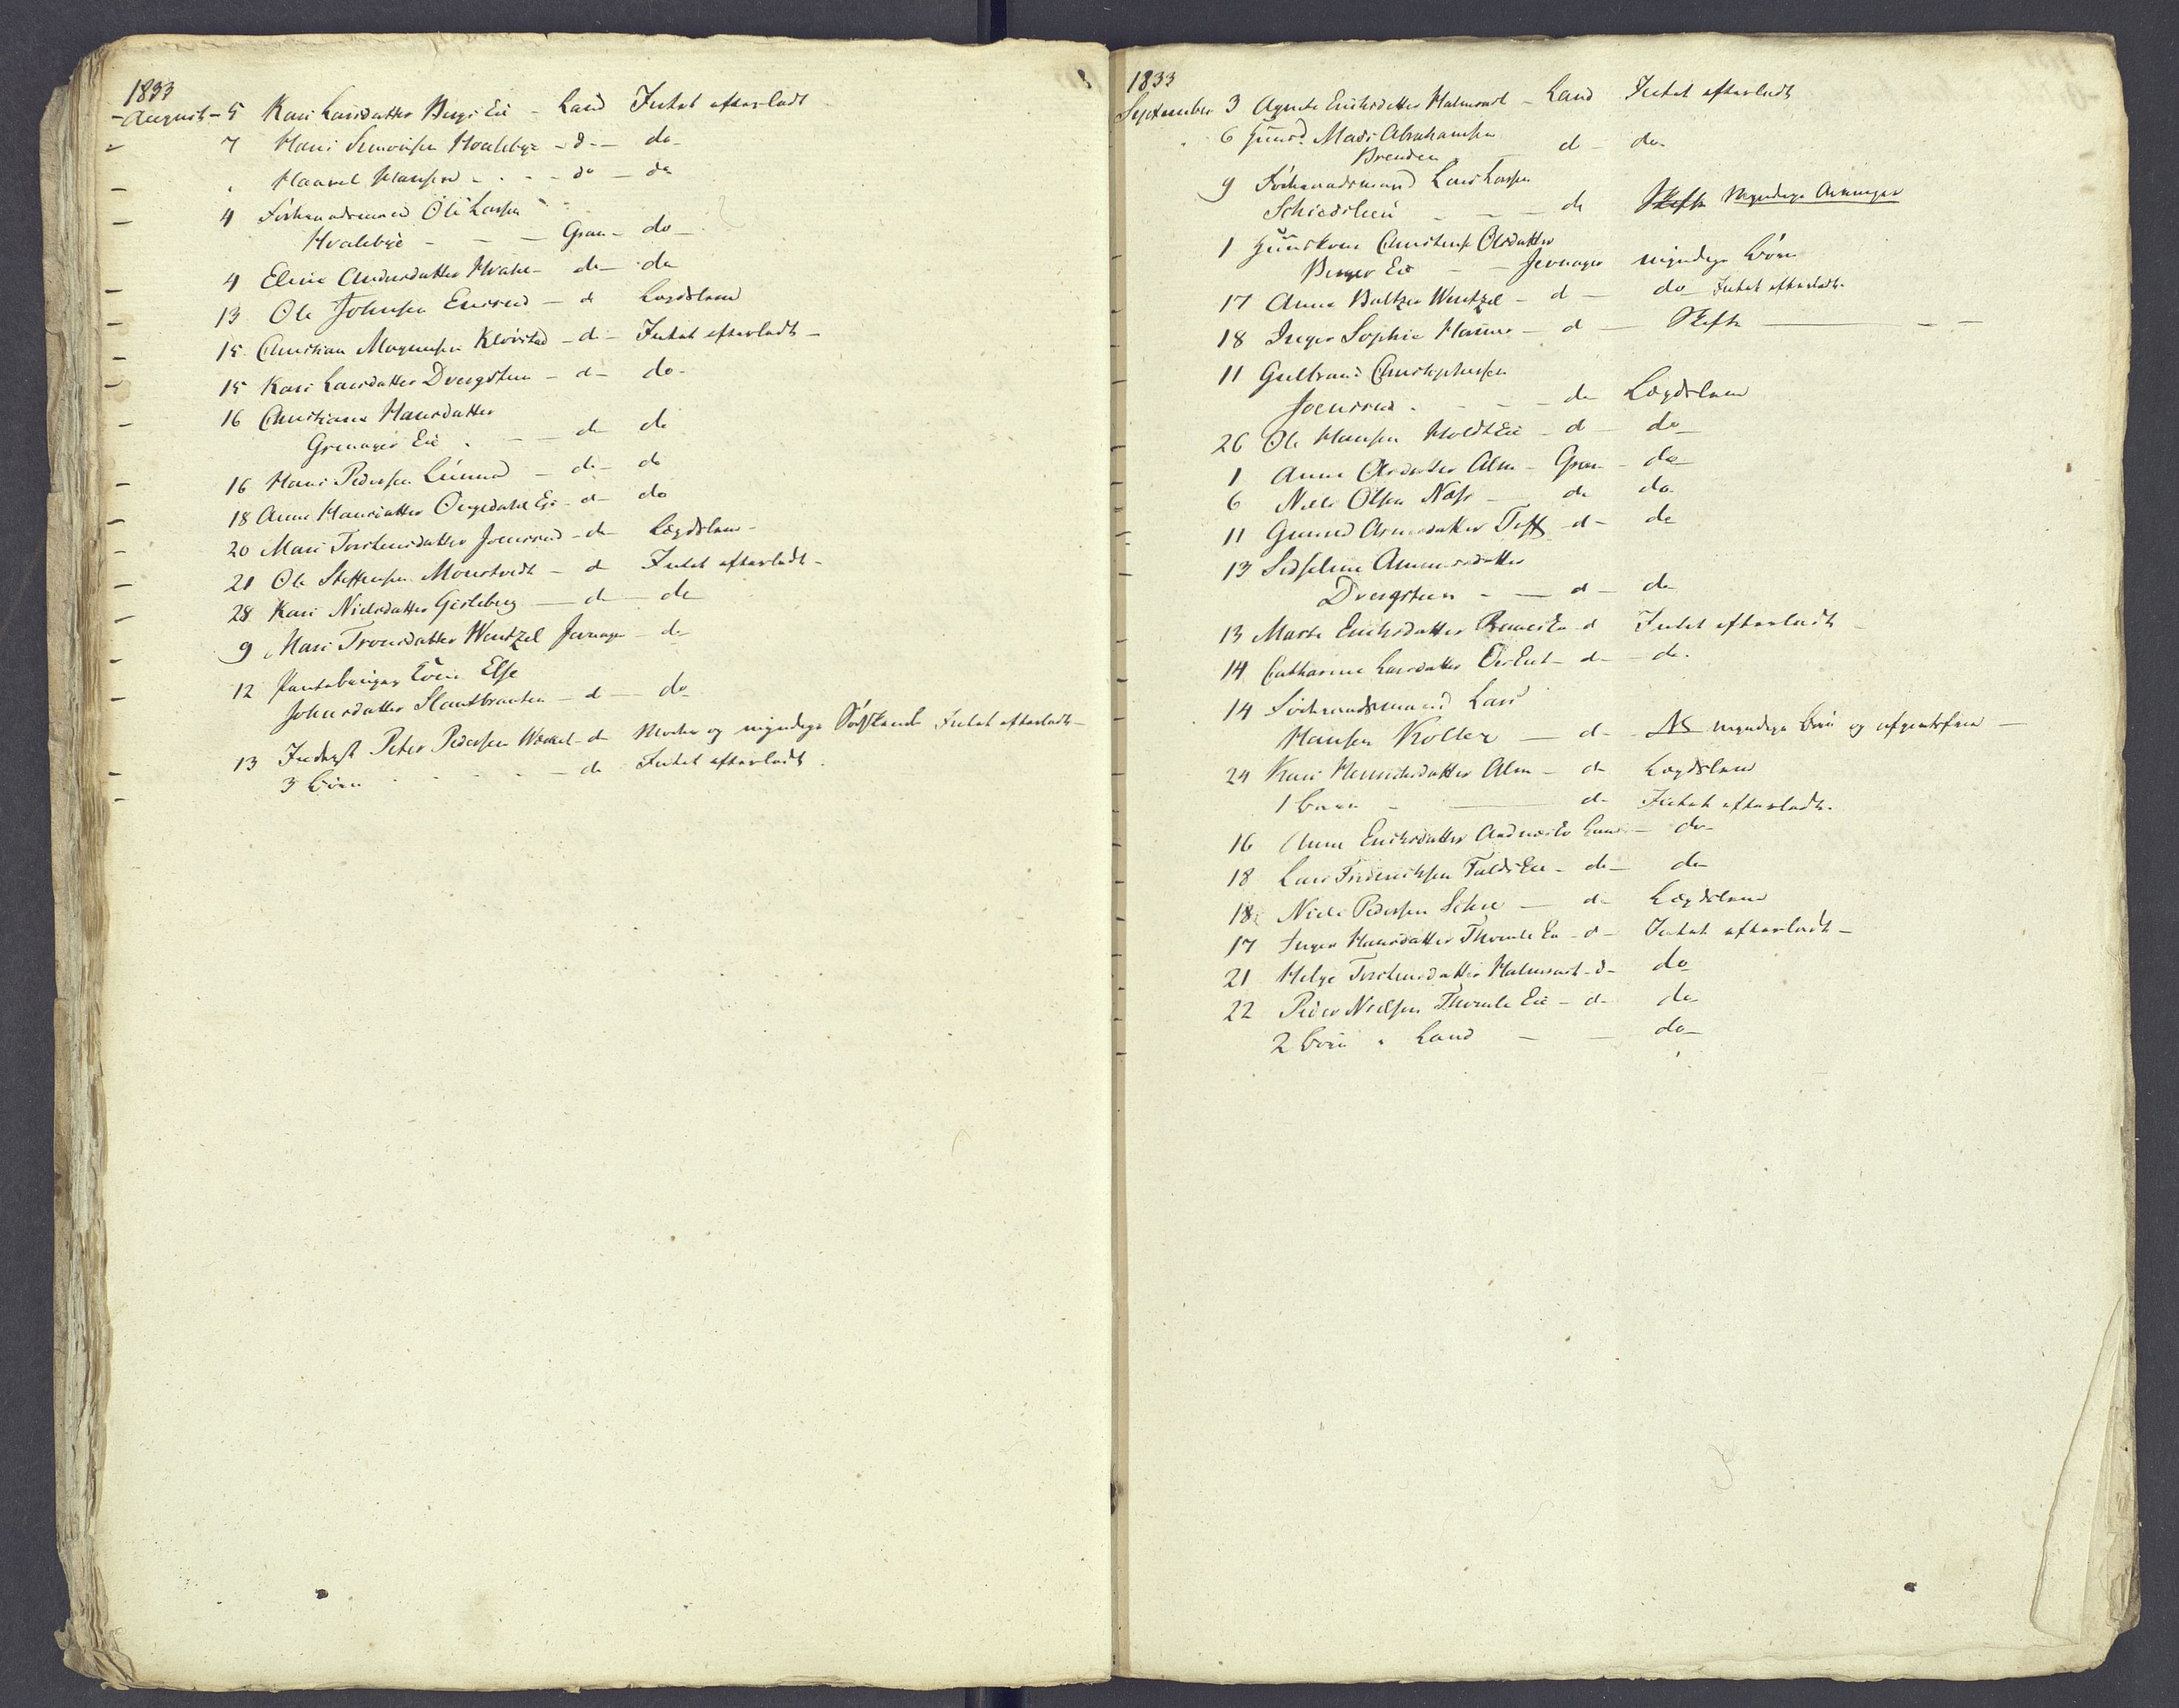 1833
August - 5 Kari Larsdatter Bergs Eie - Land Intet efterladt
7 Hans Simensen Hvaleby - d - do
Haavel Hansen - - do - do
4 Førkaadsmand Ole Larsen
Hvalebye - - - Gran - do
4 Eline Andersdatter Hvale - do - do
13 Ole Johnsen Enerud - d Lægdslem
15 Christian Magnusen Klørstad - d - Intet efterladt -
15 Kari Larsdatter Dvergsten - d - do
16 Christiane Hansdatter
Grinager Eie - do do
16 Hans Pedersen Lunna - do - do
18 Anne Hansdatter Eie - d - do
20 Mari Torstensdatter Joensrud - do - Lægdslem -
21 Ole Steffensen Monstvedt - d Intet efterladt -
28 Kari Nielsdatter Gisleberg - d - do
9 Mari Tronsdatter Wentzel Jevnager - do
12 Else
Johnsdatter Slaatbraaten - d - do
13 Inderst Peter Pedersen - do Moder og myndige Søskende Intet efterladt -
3 Børn - - - do Intet efterladt
1833
September 3 Agnete Erichsdatter Halmrast - Land Intet efterladt
6 Huusmd Mads Abrahamsen
Brenden - do - do
9 Førkaadsmand Lars Larsen
- - - do Skifte Myndige Arvinger
1 Huuskone Christense Olsdatter
Berger Eie - - Jevnager myndige Børn
17 Anne Baltzer Wentzel - d - do Intet efterladt
18 Inger Sophie - d - Skifte - - -
11 Gulbrand Christophersen
Joensrud - - - do Lægdslem
26 Ole Hansen Holdt Eie - d - do
1 Anne Olsdatter Alm - Gran - do
6 Niels Olsen Næss - do do
11 Gunild Arnesdatter Tofft - d - do
13 Amundsdatter
Dvergsten - - d - do
13 Marte Erichsdatter - d Intet efterladt -
14 Catharine Larsdatter - do - do
14 Førkaadsmand Lars
Hansen Koller - d - myndige Børn og
24 Kari Henrichsdatter Alm - do Lægdslem
1 Barn - do Intet efterladt
16 Anne Erichsdatter Land - do
18 Lars Friderichsen Falds Eie - do - do
18 Niels Pedersen - d - Lægdslem
17 Inger Hansdatter Thomle Eie - d - Intet efterladt -
21 Helge Torstensdatter Halmrast - d - do
22 Peder Nielsen Thomle Eie - d - do
2 Børn - Land - - do